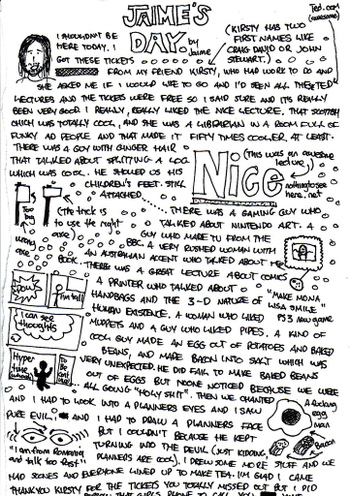 JAIME'S
DAY.
by Jaime
Ted.com
(awesome)
I SHOULDN'T BE
HERE TODAY. I
GOT THESE TICKETS
(KIRSTY HAS TWO
FIRST NAMES LIKE
CRAIG DAVID OR JOHN
STEWART.)
FROM MY FRIEND KIRSTY, WHO HAD WORK TO DO AND
SHE ASKED ME IF I WOULD LIKE TO GO AND I'D SEEN ALL THE TED
LECTURES AND THE TICKETS WERE FREE SO I SAID SURE AND IT'S REALLY
BEEN VERY GOOD. I REALLY, REALLY LIKED THE NICE LECTURE, THAT SCOTTISH
CHICK WAS TOTALLY COOL, AND SHE WAS A LIBRARIAN IN A ROOM FULL OF
FUNKY AD PEOPLE AND THAT MADE IT FIFTY TIMES COOLER, AT LEAST.
THERE WAS A GUY WITH GINGER HAIR
THAT TALKED ABOUT SPLITTING A LOG
WHICH WAS COOL. HE SHOWED US HIS
CHILDREN'S FEET. STICK
ATTACHED
Nice
(This was an awesome
lecture)
nothingtosee
here.net
Too
big
(The trick is
to use the right
axe)
wrong
axe
THERE WAS A GAMING GUY WHO
TALKED ABOUT NINTENDO ART. A
GUY WHO MADE TV FROM THE
BBC. A VERY RUSHED WOMAN WITH
AN AUSTRALIAN ACCENT WHO TALKED ABOUT
BOOK. THERE WAS A GREAT LECTURE ABOUT COMICS
A PRINTER WHO TALKED ABOUT
HANDBAGS AND THE 3-D NATURE OF
HUMAN EXISTENCE. A WOMAN WHO LIKED
MUPPETS AND A GUY WHO LIKED PIPES. A KIND OF
COOL GUY MADE AN EGG OUT OF POTATOES AND BAKED
BEANS, AND MADE BACON INTO SALT WHICH WAS
VERY UNEXPECTED. HE DID FAIL TO MAKE BAKED BEANS
OUT OF EGGS BUT NOONE NOTICED BECAUSE WE WERE
ALL GOING "HOLY SHIT". THEN WE CHANTED
"MAKE MONA
LISA SMILE"
PS3 new game
I'm tall
I can see
thoughts
Hyper
time
AND I HAD TO LOOK INTO A PLANNERS EYES AND I SAW
PURE EVIL. AND I HAD TO DRAW A PLANNERS FACE
BUT I COULDN'T BECAUSE HE KEPT
TURNING INTO THE DEVIL (JUST KIDDING,
PLANNERS ARE COOL). I DREW SOME MORE STUFF AND WE
A fucking
egg
man
Bacon
"I am from
and talk too fast"
HAD SCONES AND EVERYONE LINED UP TO MAKE TEA. I'M GLAD I CAME
THANKYOU KIRSTY FOR THE TICKETS YOU TOTALLY MISSED OUT BUT I DID